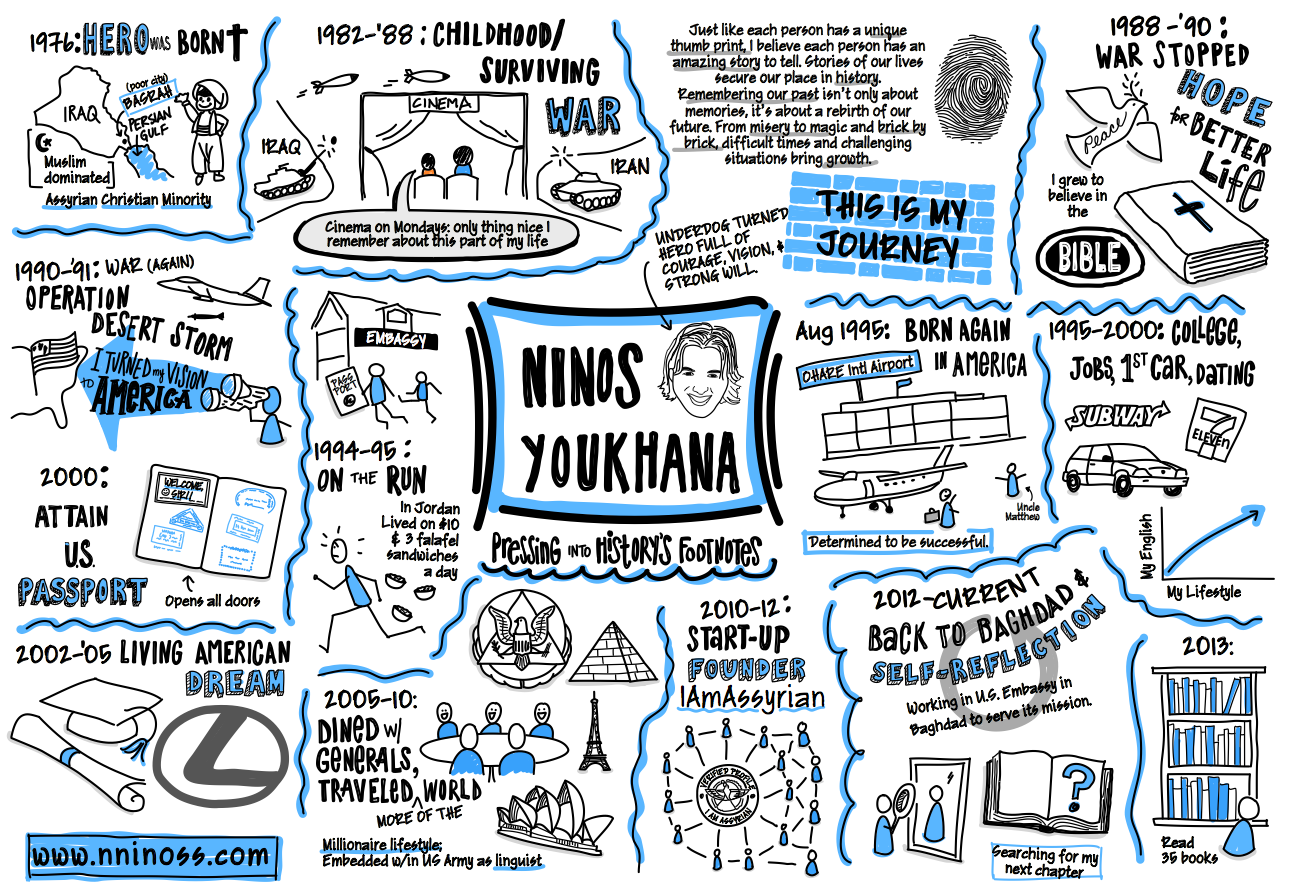 1976: HERO WAS BORN
IRAQ
(poor city)
BASRAH
PERSIAN
GULF
Muslim
dominated
Assyrian Christian Minority
1982-'88: CHILDHOOD/
SURVIVING
WAR
CINEMA
IRAQ
IRAN
Cinema on Mondays: only thing nice I
remember about this part of my life
Just like each person has a unique
thumb print, I believe each person has an
amazing story to tell. Stories of our lives
secure our place in history.
Remembering our past isn't only about
memories, it's about a rebirth of our
future. From misery to magic and brick by
brick, difficult times and challenging
situations bring growth.
THIS IS MY
JOURNEY
UNDERDOG TURNED
HERO FULL OF
COURAGE, VISION, &
STRONG WILL.
1988-'90:
WAR STOPPED
HOPE
for BETTER
Life
Peace
I grew to
believe in
the
BIBLE
1990-'91: WAR (AGAIN)
OPERATION
DESERT STORM
I TURNED my VISION
to AMERICA
EMBASSY
PASS
PORT
1994-95:
ON THE RUN
In Jordan
Lived on $10
& 3 falafel
sandwiches
a day
NINOS
YOUKHANA
PRESSING INTO HISTORY'S FOOTNOTES
Aug 1995: BORN AGAIN
IN AMERICA
OHARE Intl Airport
Uncle
Matthew
Determined to be successful.
1995-2000: COLLEGE,
JOBS, 1ST CAR, DATING
SUBWAY
7
ELEVEN
My English
My Lifestyle
2000:
ATTAIN
U.S.
PASSPORT
WELCOME,
SIR!!
Opens all doors
2002-'05 LIVING AMERICAN
DREAM
www.nninoss.com
2005-10:
DINED w/
GENERALS,
TRAVELED WORLD
MORE OF THE
Millionaire lifestyle;
Embedded w/in US Army as linguist
2010-12:
START-UP
FOUNDER
IAmAssyrian
VERIFIED PEOPLE
I AM ASSYRIAN
2012-CURRENT
BACK TO BAGHDAD &
SELF-REFLECTION
Working in U.S. Embassy in
Baghdad to serve its mission.
?
Searching for my
next chapter
2013:
Read
35 books